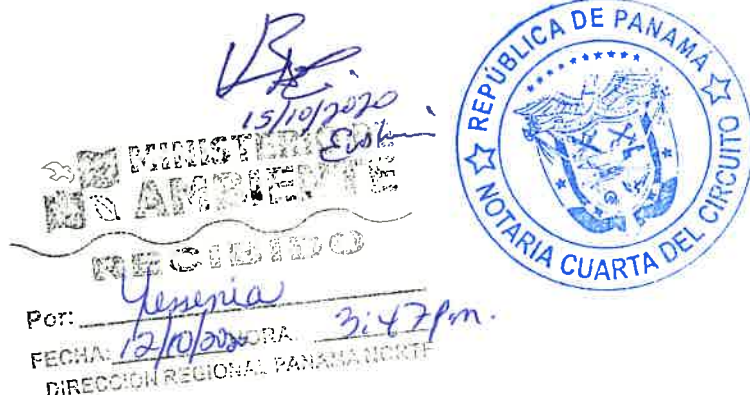 15/10/2020
MINISTERIO DE
AMBIENTE
RECIBIDO
Por: Yessenia
FECHA: 12/10/2020 HORA: 3:47 p.m.
DIRECCION REGIONAL PANAMA NORTE
REPÚBLICA DE PANAMÁ
NOTARIA CUARTA DEL CIRCUITO